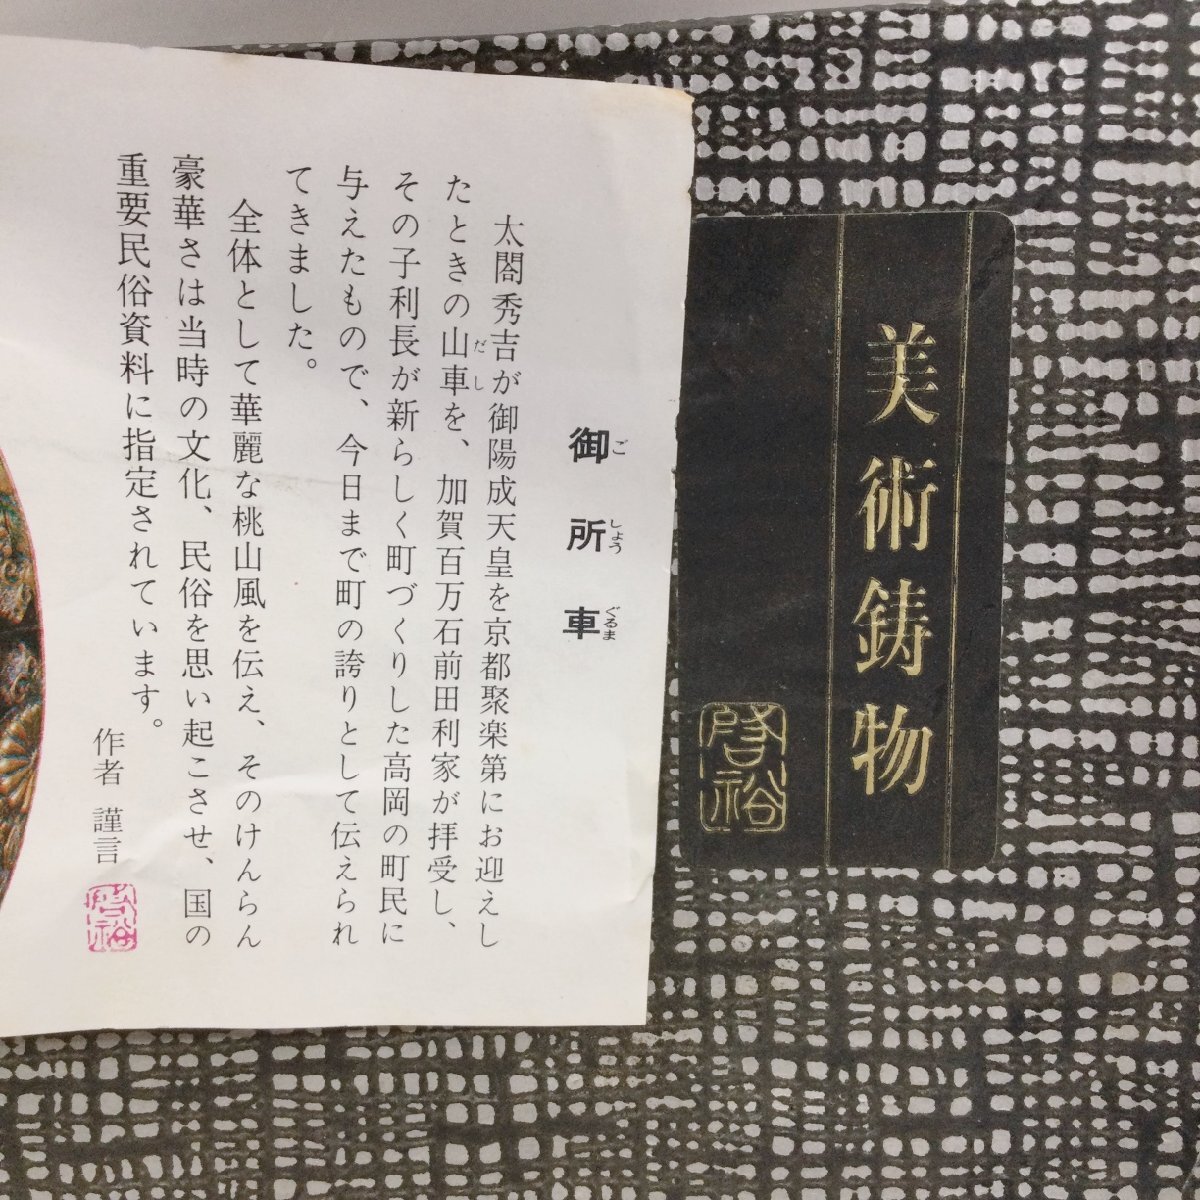 美術鋳物
啓裕
御所車
ご
しょう
ぐるま
太閤秀吉が御陽成天皇を京都聚楽第にお迎えし
たときの山車を、加賀百万石前田利家が拝受し、
だし
その子利長が新らしく町づくりした高岡の町民に
与えたもので、今日まで町の誇りとして伝えられ
てきました。
全体として華麗な桃山風を伝え、そのけんらん
豪華さは当時の文化、民俗を思い起こさせ、国の
重要民俗資料に指定されています。
作者 謹言
啓裕